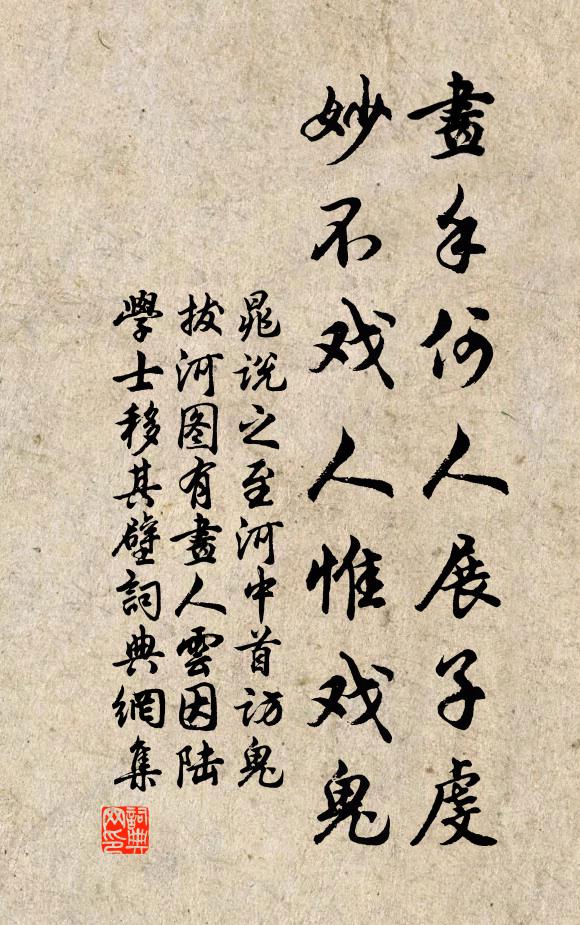 畫手何人展子虔
妙不戏人惟戏鬼
晁说之至河中首访鬼
拔河图有畫人雲因陆
學士移其壁詞典網集
詞典网印